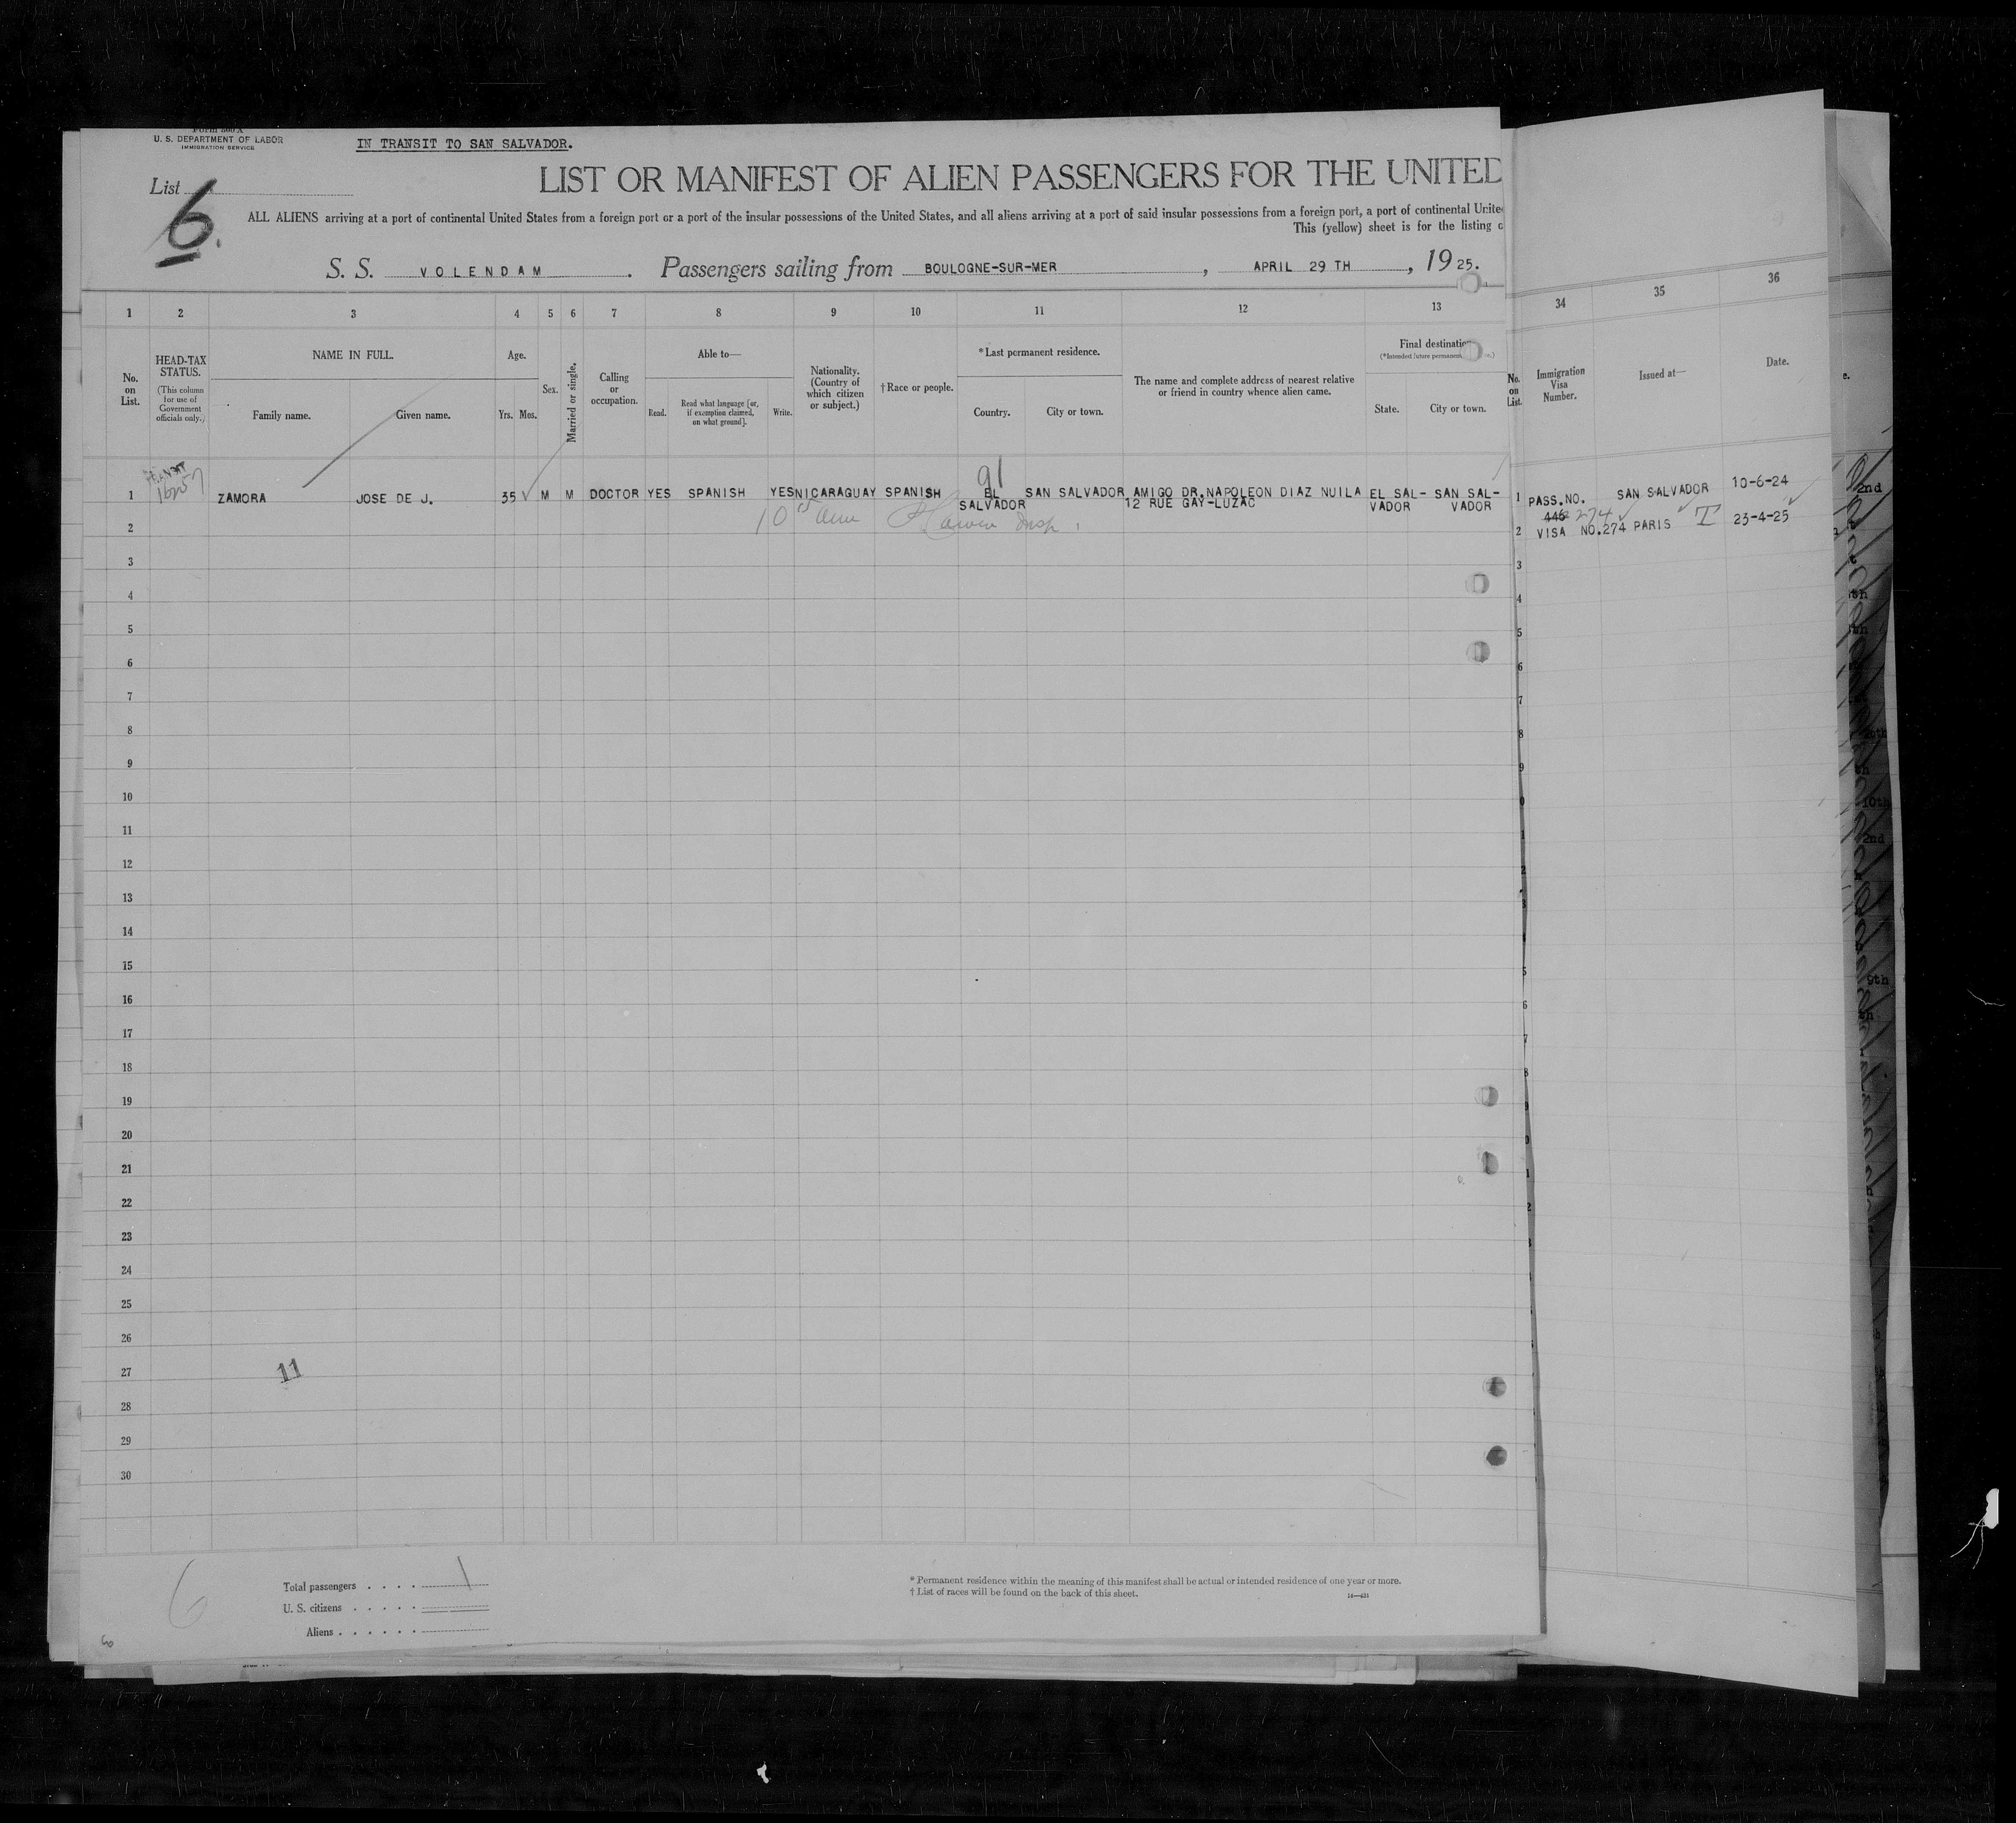 Form 500 A
U. S. DEPARTMENT OF LABOR
IMMIGRATION SERVICE
IN TRANSIT TO SAN SALVADOR.
List
6.
LIST OR MANIFEST OF ALIEN PASSENGERS FOR THE UNITED
ALL ALIENS arriving at a port of continental United States from a foreign port or a port of the insular possessions of the United States, and all aliens arriving at a port of said insular possessions from a foreign port, a port of continental Unite
This (yellow) sheet is for the listing o
S. S. VOLENDAM. Passengers sailing from BOULOGNE-SUR-MER, APRIL 29 TH, 1925.
1 2 3 4 5 6 7 8 9 10 11 12 13 34 35 36
No. on List.
HEAD-TAX STATUS.
(This column for use of Government officials only.)
NAME IN FULL.
Family name. Given name.
Age.
Yrs. Mos.
Sex.
Married or single.
Calling or occupation.
Able to—
Read. Read what language [or, if exemption claimed, on what ground]. Write.
Nationality. (Country of which citizen or subject.)
†Race or people.
*Last permanent residence.
Country. City or town.
The name and complete address of nearest relative or friend in country whence alien came.
Final destinatio
(*Intended future permanent
State. City or town.
No. on List.
Immigration Visa Number.
Issued at—
Date.
91
1 TRANSIT ZAMORA JOSE DE J. 35 M M DOCTOR YES SPANISH YES NICARAGUAY SPANISH EL SALVADOR SAN SALVADOR AMIGO DR.NAPOLEON DIAZ NUILA EL SAL- SAN SAL-
12 RUE GAY-LUZAC VADOR VADOR
1 PASS.NO. SAN SALVADOR 10-6-24
446 274
2 VISA NO.274 PARIS T 23-4-25
2
3
4
5
6
7
8
9
10
11
12
13
14
15
16
17
18
19
20
21
22
23
24
25
26
27
11
28
29
30
6
Total passengers . . . . 1
U. S. citizens . . . . .
Aliens . . . . . .
* Permanent residence within the meaning of this manifest shall be actual or intended residence of one year or more.
† List of races will be found on the back of this sheet.